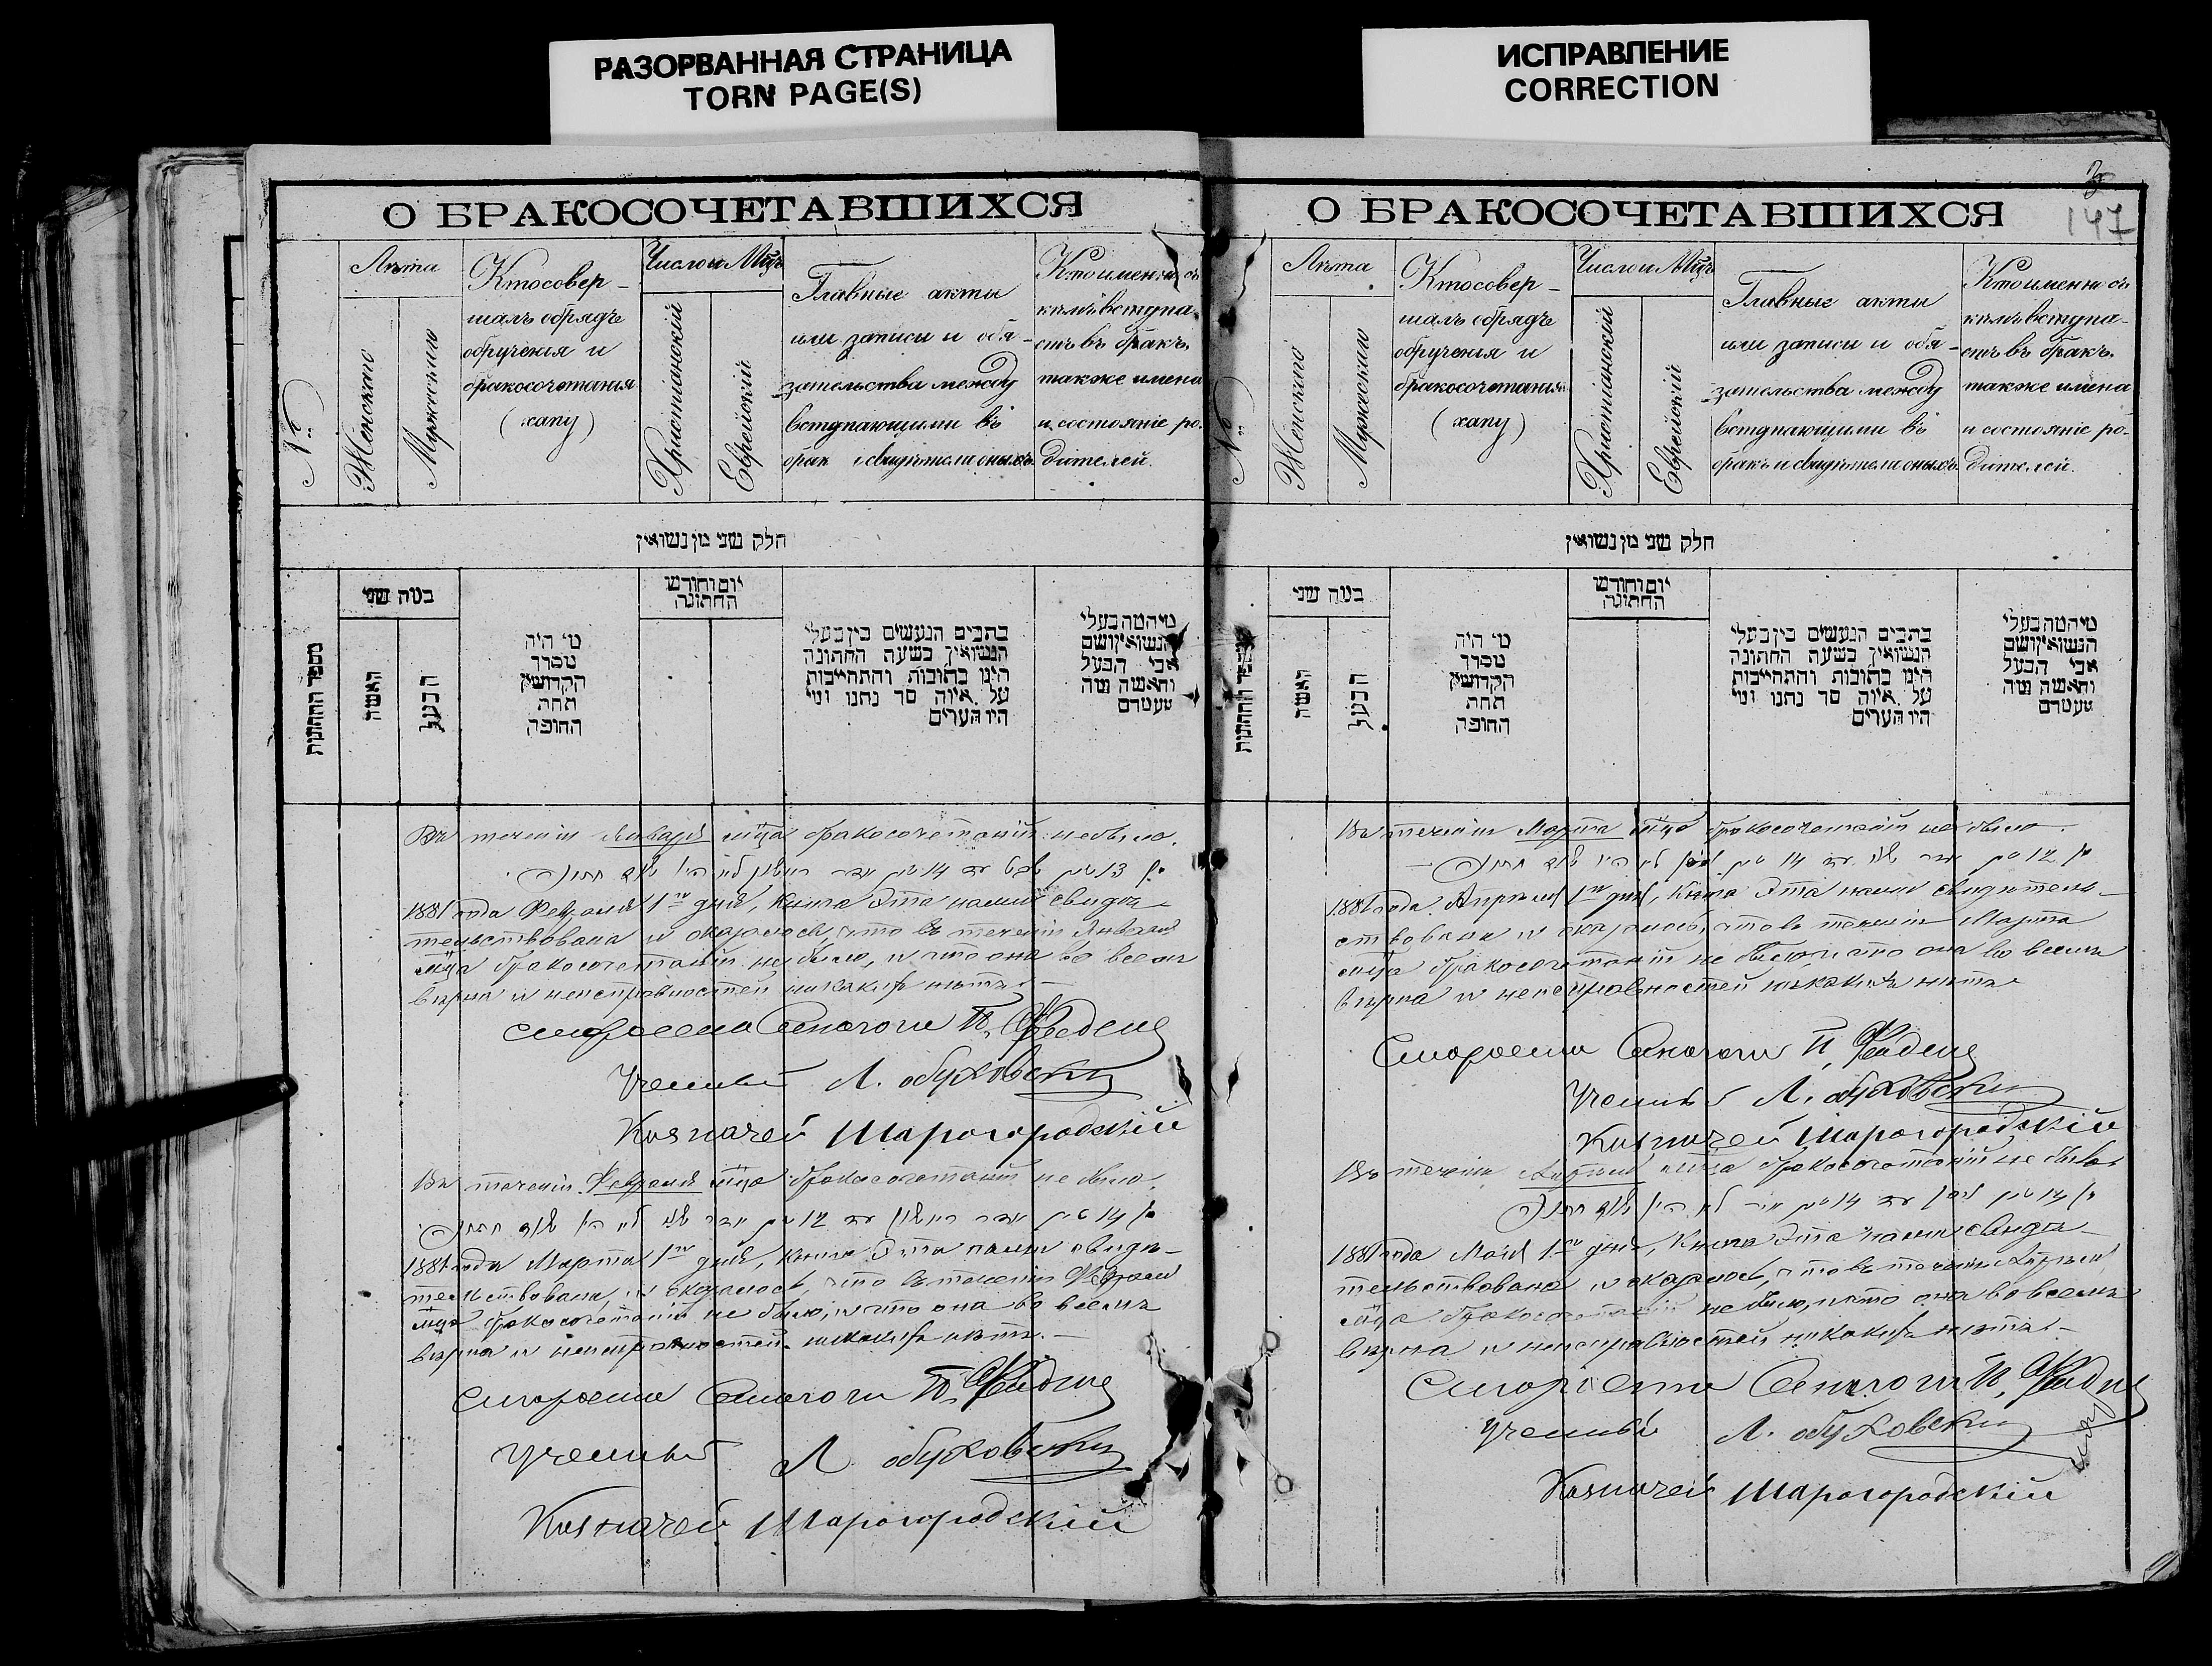 РАЗОРВАННАЯ СТРАНИЦА
TORN PAGE(S)
ИСПРАВЛЕНИЕ
CORRECTION
О БРАКОСОЧЕТАВШИХСЯ
№
Лѣта
Женскаго
Мужескаго
Кто совер-
шалъ обрядъ
обрученія и
бракосочетанія
(хапу)
Число и Мцъ
Христіанскій
Еврейскій
Главные акты
или записи и обя-
зательства между
вступающими въ
бракъ и свидѣтели оныхъ
Кто именно съ
кѣмъ вступа-
етъ въ бракъ,
также имена
и состояніе ро-
дителей.
חלק שני מן נשואין
מספר החתונות
במה שני
האשה
הבעל
מי היה
מסדר
הקדושין
תחת
החופה
יום וחודש
החתונה
כתבים הנעשים בין בעלי
הנשואין בשעת החתונה
היינו כתובות והתחייבות
על איזה סך נתנו ומי
היו העדים
מי המה בעלי
הנשואין ושם
אבי הבעל
והאשה מה
מעמדם
Въ теченіи Января мца бракосочетаній не было.
1881 года Февраля 1го дня, книга эта нами свидѣ-
тельствована и оказалось, что въ теченіи Января
мца бракосочетаній не было, и что она во всемъ
вѣрна и неисправностей никакихъ нѣтъ.
Староста Синагоги
Ученый Л. Обуховскій
Казначей Шарогородскій
Въ теченіи Февраля мца бракосочетаній не было.
1881 года Марта 1го дня, книга эта нами свидѣ-
тельствована, и оказалось, что въ теченіи Февраля
мца бракосочетаній не было, и что она во всемъ
вѣрна и неисправностей никакихъ нѣтъ.
Староста Синагоги
Ученый Л. Обуховскій
Казначей Шарогородскій
3
147
О БРАКОСОЧЕТАВШИХСЯ
№
Лѣта
Женскаго
Мужескаго
Кто совер-
шалъ обрядъ
обрученія и
бракосочетанія
(хапу)
Число и Мцъ
Христіанскій
Еврейскій
Главные акты
или записи и обя-
зательства между
вступающими въ
бракъ и свидѣтели оныхъ
Кто именно съ
кѣмъ вступа-
етъ въ бракъ,
также имена
и состояніе ро-
дителей.
חלק שני מן נשואין
מספר החתונות
במה שני
האשה
הבעל
מי היה
מסדר
הקדושין
תחת
החופה
יום וחודש
החתונה
כתבים הנעשים בין בעלי
הנשואין בשעת החתונה
היינו כתובות והתחייבות
על איזה סך נתנו ומי
היו העדים
מי המה בעלי
הנשואין ושם
אבי הבעל
והאשה מה
מעמדם
Въ теченіи Марта мца бракосочетаній не было.
1881 года Апрѣля 1го дня, книга эта нами свидѣтель-
ствована и оказалось, что въ теченіи Марта
мца бракосочетаній не было и что она во всемъ
вѣрна и неисправностей никакихъ нѣтъ
Староста Синагоги
Ученый Л. Обуховскій
Казначей Шарогородскій
Въ теченіи Апрѣля мца бракосочетаній не было
1881 года Мая 1го дня, книга эта нами свидѣ-
тельствована и оказалось, что въ теченіи Апрѣля
мца бракосочетаній не было, и что она во всемъ
вѣрна и неисправностей никакихъ нѣтъ.
Староста Синагоги
Ученый Л. Обуховскій
Казначей Шарогородскій